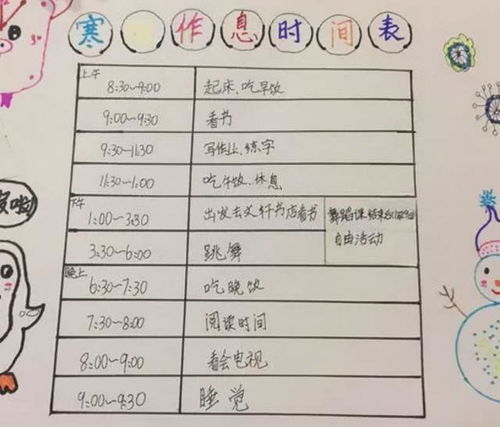 寒 作息时间表
上午
8:30~9:00 起床、吃早饭
9:00~9:30 看书
9:30~11:30 写作业、练字
11:30~1:00 吃午饭、休息
下午
1:00~3:30 出发去文轩书店看书
舞蹈课结束
自由活动
3:30~6:00 跳舞
晚上
6:30~7:30 吃晚饭
7:30~8:00 阅读时间
8:00~9:00 看会电视
9:00~9:30 睡觉